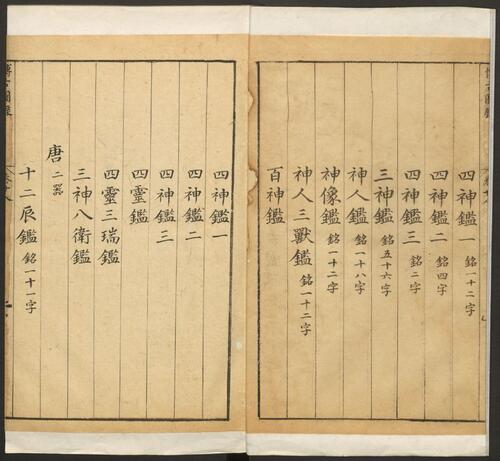 四神鑑一 銘一十二字
四神鑑二 銘四字
四神鑑三 銘二字
三神鑑 銘五十六字
神人鑑 銘一十八字
神像鑑 銘一十二字
神人三獸鑑 銘一十二字
百神鑑
四神鑑一
四神鑑二
四神鑑三
四靈鑑
四靈三瑞鑑
三神八衛鑑
唐 二器
十二辰鑑 銘一十一字